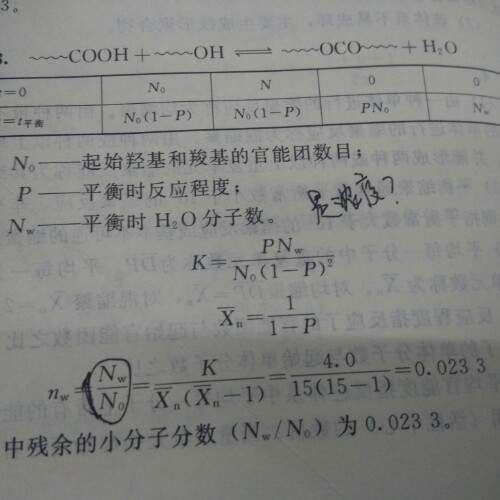 3。
3. ~~~COOH + ~~~OH ⇌ ~~~OCO~~~ + H₂O
t=0 N₀ N 0 0
t=t平衡 N₀(1-P) N₀(1-P) PN₀ Nw
N₀——起始羟基和羧基的官能团数目;
P——平衡时反应程度;
Nw——平衡时 H₂O 分子数。 是浓度?
K=PNw/N₀(1-P)²
X̄n=1/1-P
nw=(Nw/N₀)=K/X̄n(X̄n-1)=4.0/15(15-1)=0.023 3
中残余的小分子分数(Nw/N₀)为 0.023 3。